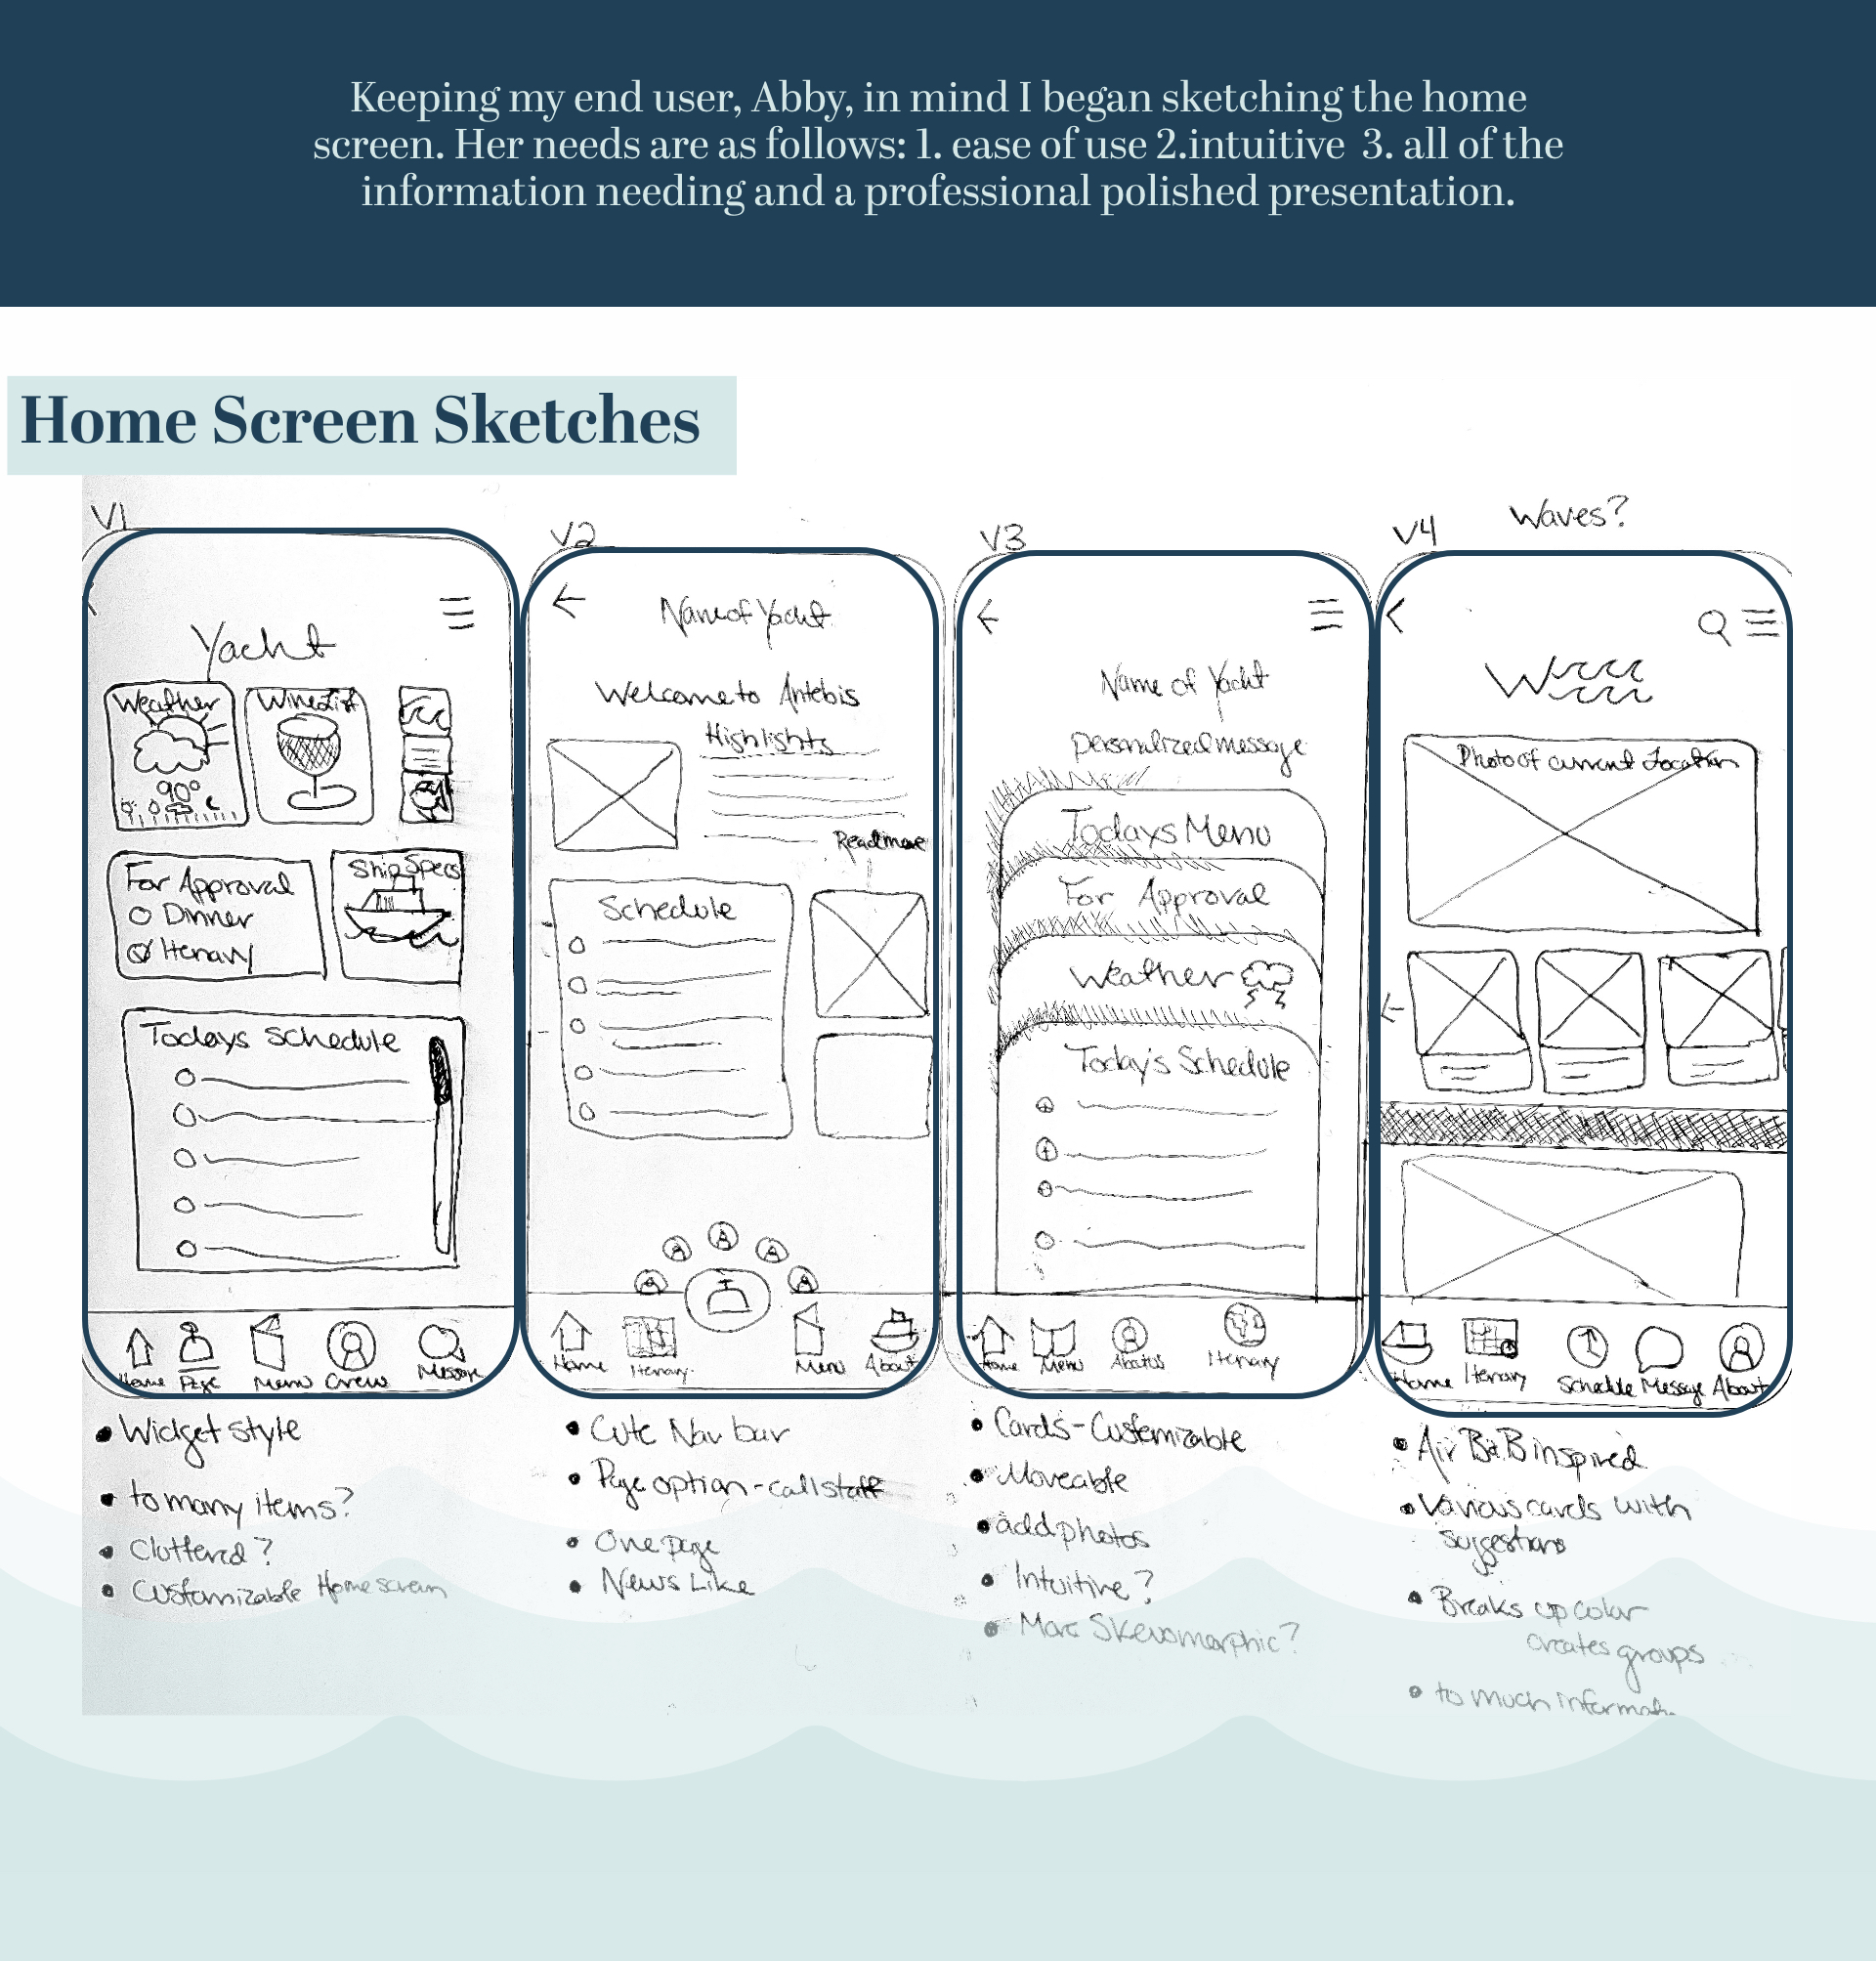 Keeping my end user, Abby, in mind I began sketching the home
screen. Her needs are as follows: 1. ease of use 2.intuitive 3. all of the
information needing and a professional polished presentation.
Home Screen Sketches
V1
Yacht
Weather
Wine List
90°
For Approval
Dinner
Itenary
Ship Specs
Todays Schedule
Home Page Menu Crew
• Widget style
• to many items?
• Cluttered?
• Customizable Home screen
V2
Name of Yacht
Welcome to Antebis
Highlights
Read more
Schedule
Home Itenary Menu About
• Cute Nav bar
• Page option - call staff
• One page
• News Like
V3
Name of Yacht
personalized message
Todays Menu
For Approval
Weather
Today's Schedule
Home Menu About us Itenary
• Cards - Customizable
• Moveable
• add photos
• Intuitive?
• More Skeuomorphic?
V4
Waves?
Photo of current Location
Home Itenary Schedule Message About
• Air B&B inspired
• Various cards with
suggestions
• Breaks up color
creates groups
• to much informat